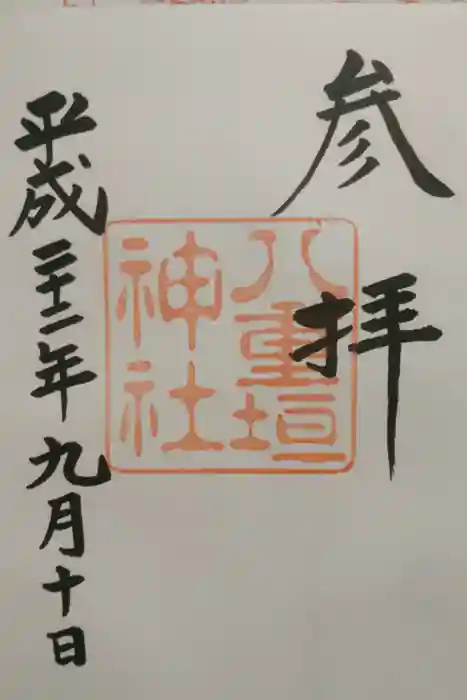 参拝
八重垣
神社
平成二十二年九月十日